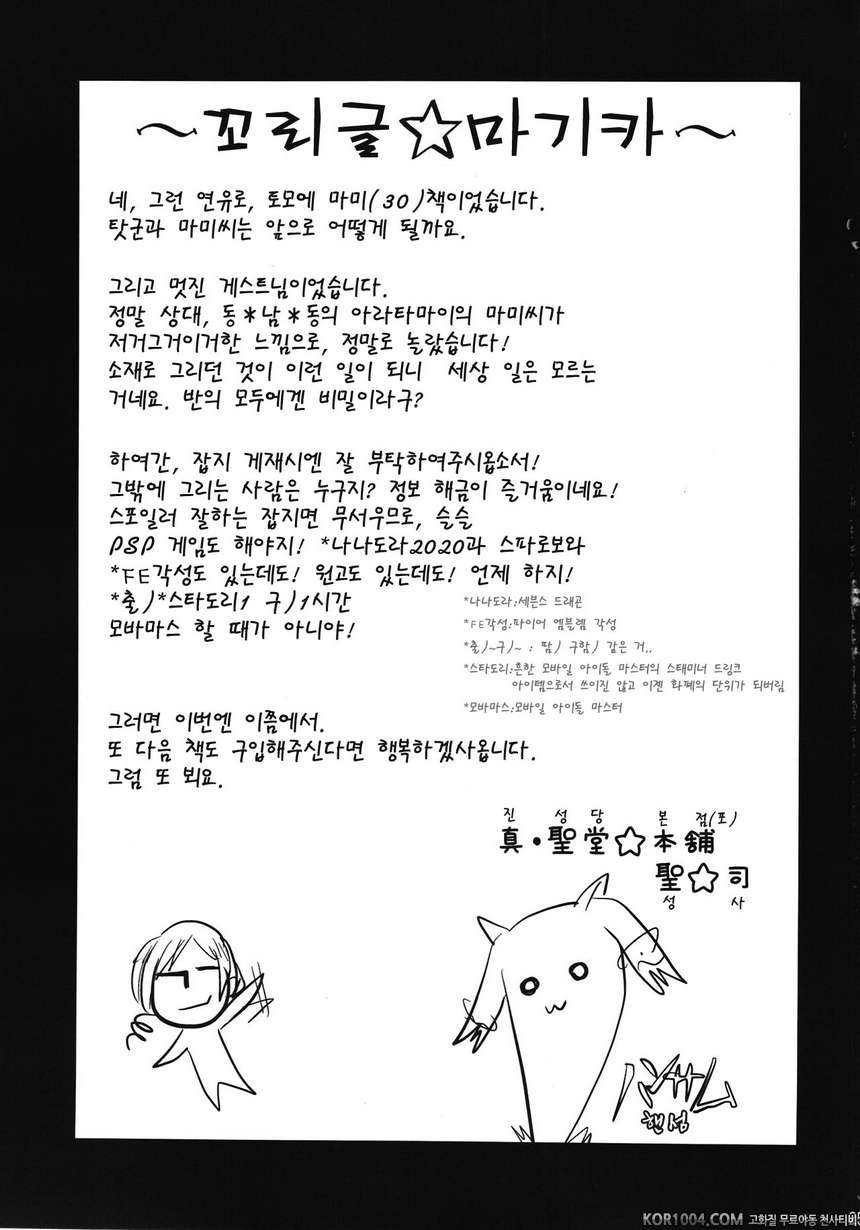 ~꼬리글☆마기카~
네, 그런 연유로, 토모에 마미(30)책이었습니다.
탓군과 마미씨는 앞으로 어떻게 될까요.
그리고 멋진 게스트님이었습니다.
정말 상대, 동*남*동의 아라타마이의 마미씨가
저거그거이거한 느낌으로, 정말로 놀랐습니다!
소재로 그리던 것이 이런 일이 되니 세상 일은 모르는
거네요. 반의 모두에겐 비밀이라구?
하여간, 잡지 게재시엔 잘 부탁하여주시옵소서!
그밖에 그리는 사람은 누구지? 정보 해금이 즐거움이네요!
스포일러 잘하는 잡지면 무서우므로, 슬슬
PSP 게임도 해야지! *나나도라2020과 스파로보와
*FE각성도 있는데도! 원고도 있는데도! 언제 하지!
*출)*스타도리1 구)1시간
모바마스 할 때가 아니야!
*나나도라:세븐스 드래곤
*FE각성:파이어 엠블렘 각성
*출)~구)~ : 팜) 구함) 같은 거..
*스타도리:흔한 모바일 아이돌 마스터의 스태미너 드링크
아이템으로서 쓰이진 않고 이젠 화폐의 단위가 되버림
*모바마스:모바일 아이돌 마스터
그러면 이번엔 이쯤에서.
또 다음 책도 구입해주신다면 행복하겠사옵니다.
그럼 또 뵈요.
진 성 당 본 점(포)
真・聖堂☆本舗
聖☆司
성 사
ハンサム
핸섬
KOR1004.COM 고화질 무료야동 천사티비